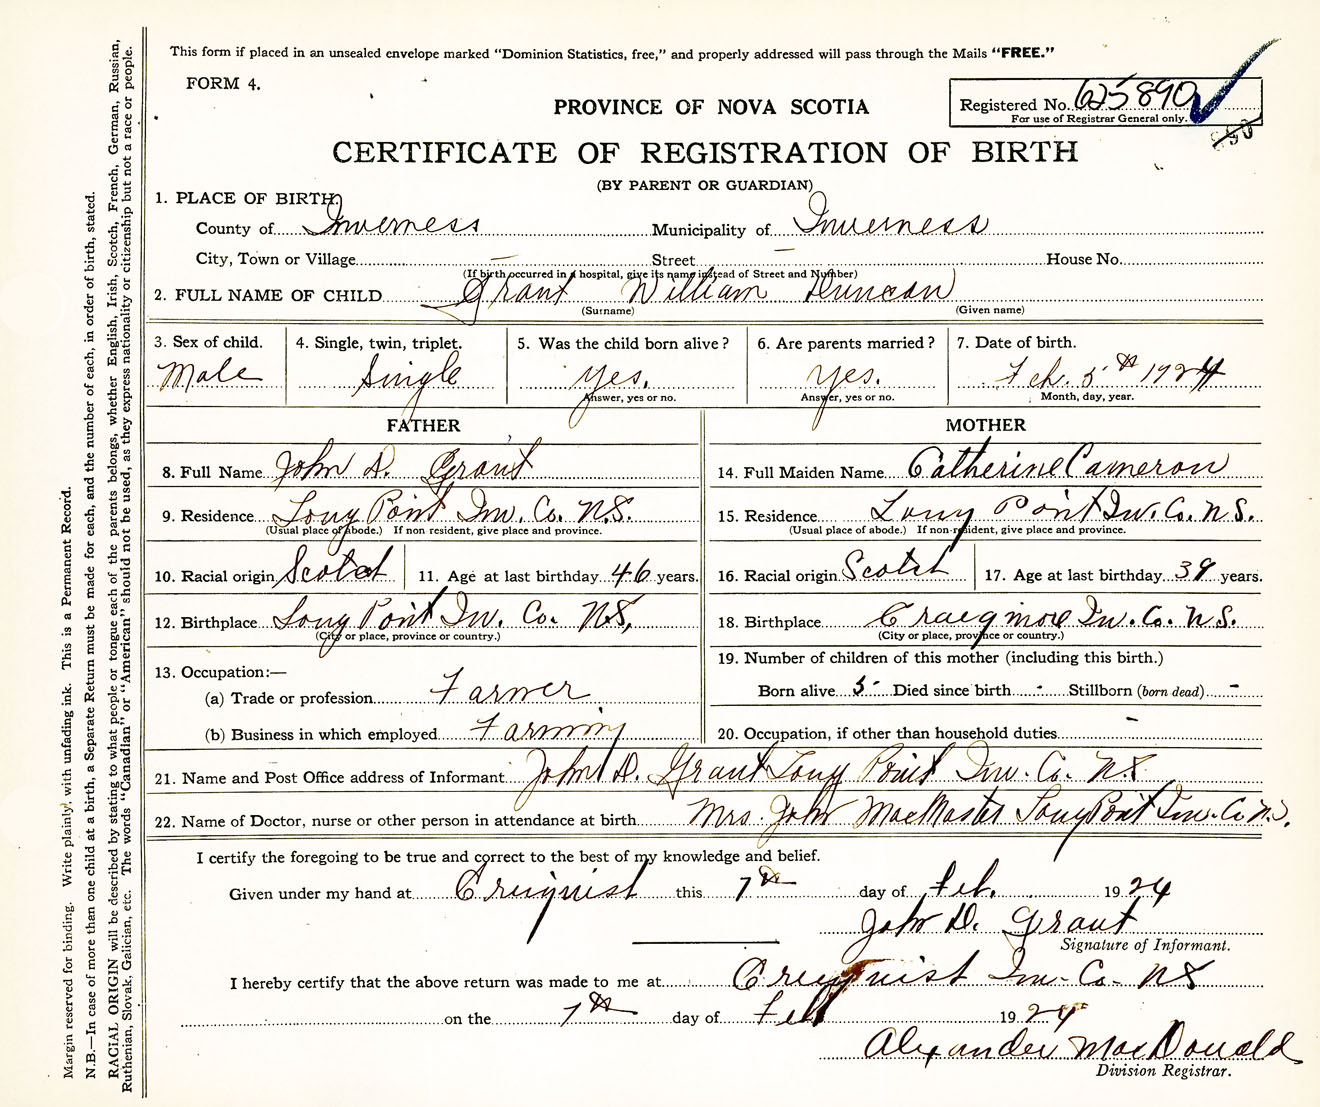 This form if placed in an unsealed envelope marked "Dominion Statistics, free," and properly addressed will pass through the Mails "FREE."
FORM 4.
PROVINCE OF NOVA SCOTIA
Registered No. 625890
For use of Registrar General only.
890
CERTIFICATE OF REGISTRATION OF BIRTH
(BY PARENT OR GUARDIAN)
1. PLACE OF BIRTH.
County of Inverness Municipality of Inverness
City, Town or Village — Street — House No.
(If birth occurred in a hospital, give its name instead of Street and Number)
2. FULL NAME OF CHILD Grant William Duncan
(Surname) (Given name)
3. Sex of child. 4. Single, twin, triplet. 5. Was the child born alive? 6. Are parents married? 7. Date of birth.
Male Single yes. yes. Feb. 5th 1924
Answer, yes or no. Answer, yes or no. Month, day, year.
FATHER MOTHER
8. Full Name John D. Grant 14. Full Maiden Name Catherine Cameron
9. Residence Long Point Inv. Co. N.S. 15. Residence Long Point Inv. Co. N.S.
(Usual place of abode.) If non resident, give place and province. (Usual place of abode.) If non-resident, give place and province.
10. Racial origin Scotch 11. Age at last birthday 46 years. 16. Racial origin Scotch 17. Age at last birthday 39 years.
12. Birthplace Long Point Inv. Co. N.S. 18. Birthplace Craigmore Inv. Co. N.S.
(City or place, province or country.) (City or place, province or country.)
13. Occupation:— 19. Number of children of this mother (including this birth.)
(a) Trade or profession Farmer Born alive 5 Died since birth - Stillborn (born dead) -
(b) Business in which employed Farming 20. Occupation, if other than household duties -
21. Name and Post Office address of Informant John D. Grant Long Point Inv. Co. N.S
22. Name of Doctor, nurse or other person in attendance at birth Mrs. John MacMaster Long Point Inv. Co. N.S.
I certify the foregoing to be true and correct to the best of my knowledge and belief.
Given under my hand at Creignist this 7th day of Feb. 1924
John D. Grant
Signature of Informant.
I hereby certify that the above return was made to me at Creignist Inv. Co. N S
on the 7th day of Feb 1924
Alexander MacDonald
Division Registrar.
Margin reserved for binding. Write plainly, with unfading ink. This is a Permanent Record.
N.B.—In case of more than one child at a birth, a Separate Return must be made for each, and the number of each, in order of birth, stated.
RACIAL ORIGIN will be described by stating to what people or tongue each of the parents belongs, whether English, Irish, Scotch, French, German, Russian,
Ruthenian, Slovak, Galician, etc. The words "Canadian" or "American" should not be used, as they express nationality or citizenship but not a race or people.